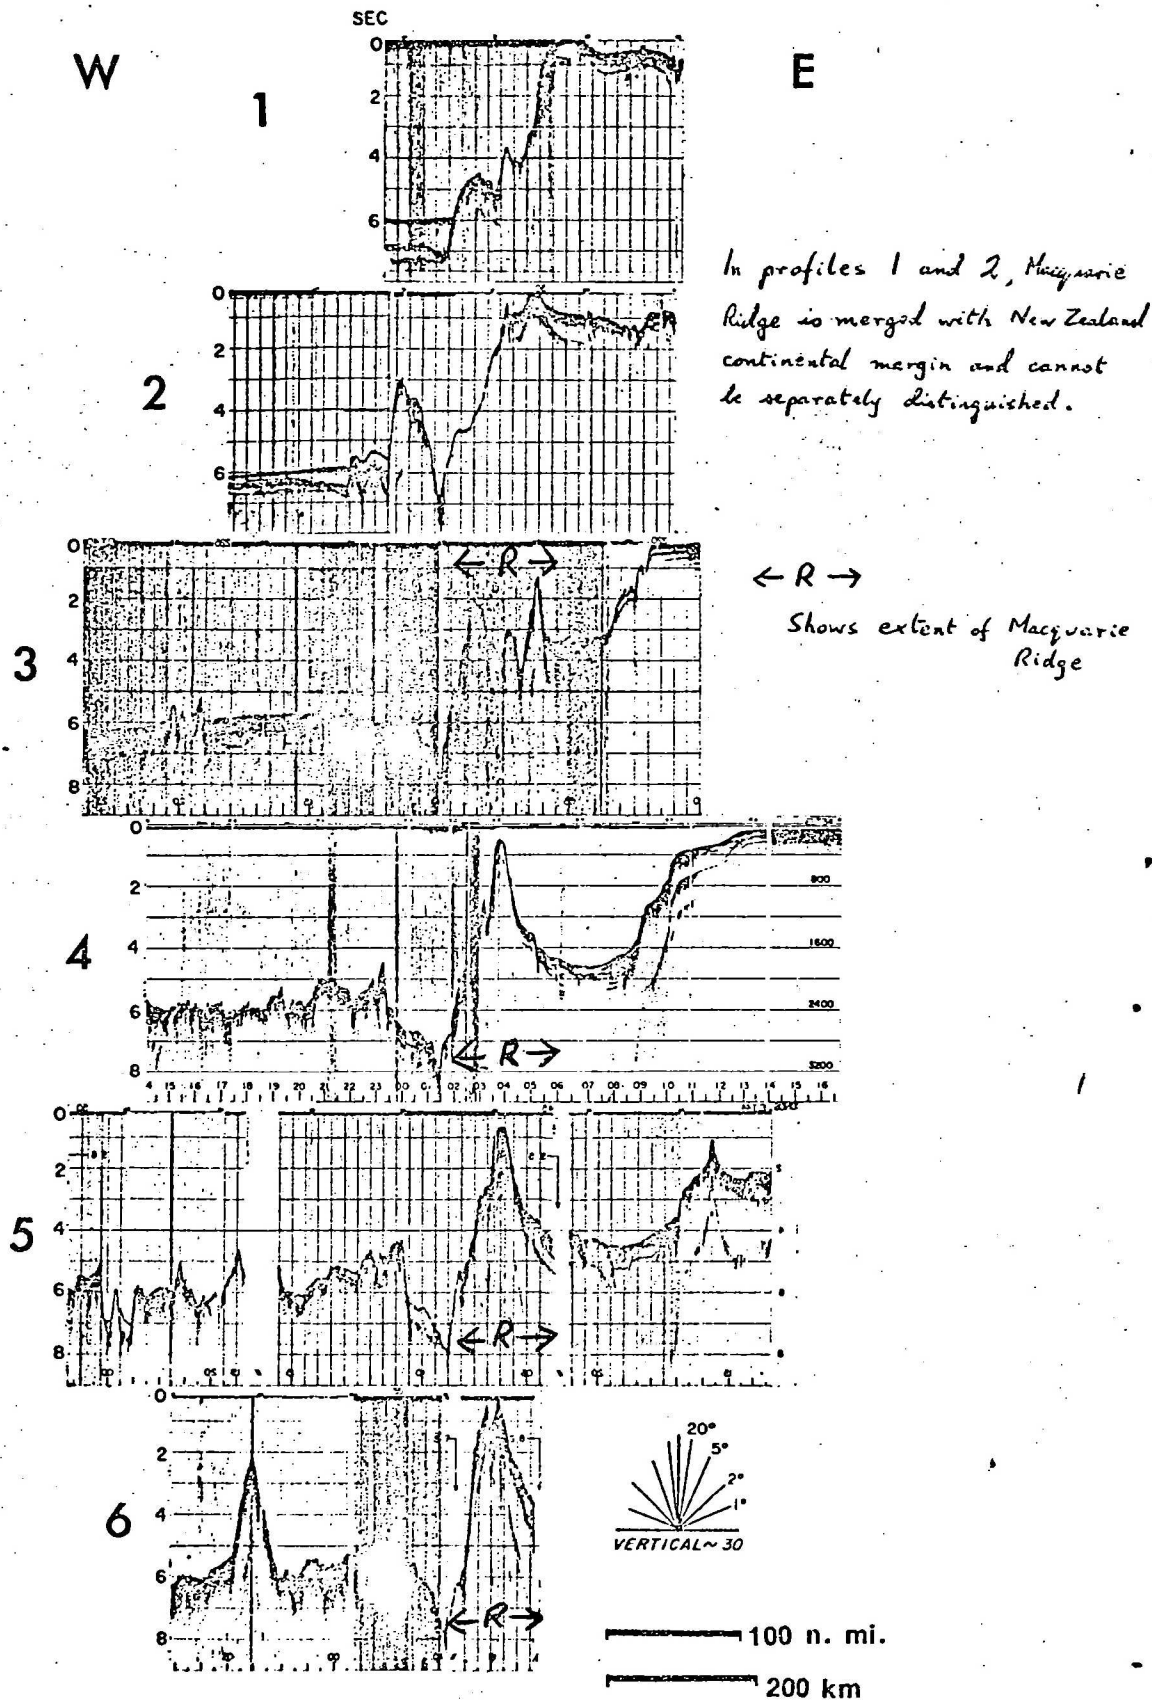 SEC
W
E
1
0
2
4
6
In profiles 1 and 2, Macquarie
Ridge is merged with New Zealand
continental margin and cannot
be separately distinguished.
2
0
2
4
6
3
0
2
4
6
8
← R →
← R →
Shows extent of Macquarie
Ridge
4
0
2
4
6
8
800
1600
2400
3200
← R →
4 15 16 17 18 19 20 21 22 23 00 01 02 03 04 05 06 07 08 09 10 11 12 13 14 15 16
5
0
2
4
6
8
← R →
6
0
2
4
6
8
← R →
20°
5°
2°
1°
VERTICAL ~ 30
100 n. mi.
200 km